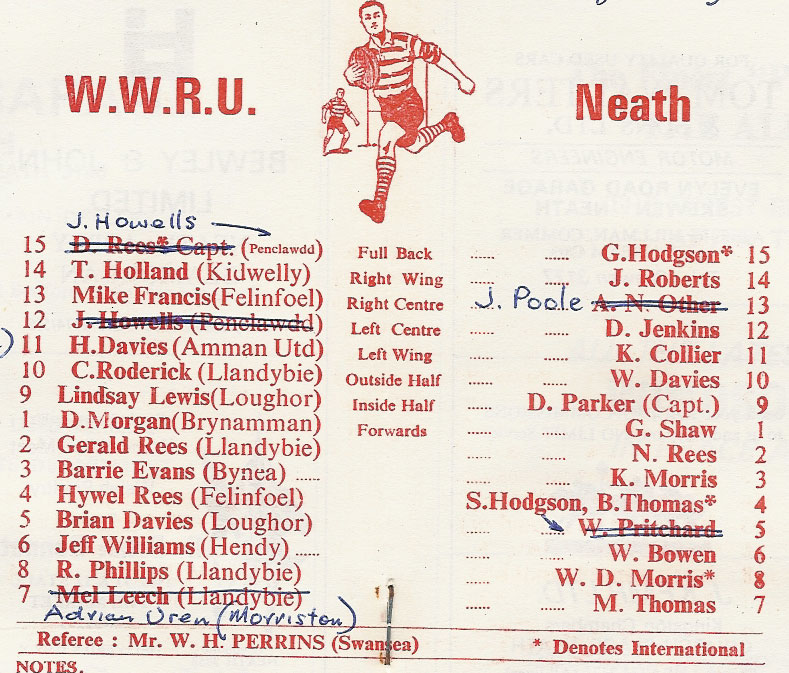 W.W.R.U. Neath
J. Howells
15 D. Rees* Capt. (Penclawdd) Full Back ...... ...... G.Hodgson* 15
14 T. Holland (Kidwelly) Right Wing ...... ...... J. Roberts 14
13 Mike Francis(Felinfoel) Right Centre ...... J. Poole A. N. Other 13
12 J. Howells (Penclawdd) Left Centre ...... ...... D. Jenkins 12
) 11 H.Davies (Amman Utd) Left Wing ...... ...... K. Collier 11
10 C.Roderick (Llandybie) Outside Half ...... ...... W. Davies 10
9 Lindsay Lewis(Loughor) Inside Half ...... D. Parker (Capt.) 9
1 D.Morgan(Brynamman) Forwards ...... ...... G. Shaw 1
2 Gerald Rees (Llandybie) ...... ...... N. Rees 2
3 Barrie Evans (Bynea) ...... ...... ...... K. Morris 3
4 Hywel Rees (Felinfoel) S.Hodgson, B.Thomas* 4
5 Brian Davies (Loughor) ...... ...... W. Pritchard 5
6 Jeff Williams (Hendy) ...... ...... ...... W. Bowen 6
8 R. Phillips (Llandybie) ...... W. D. Morris* 8
7 Mel Leech (Llandybie) ...... ...... M. Thomas 7
Adrian Uren (Morriston)
Referee : Mr. W. H. PERRINS (Swansea) * Denotes International
NOTES.